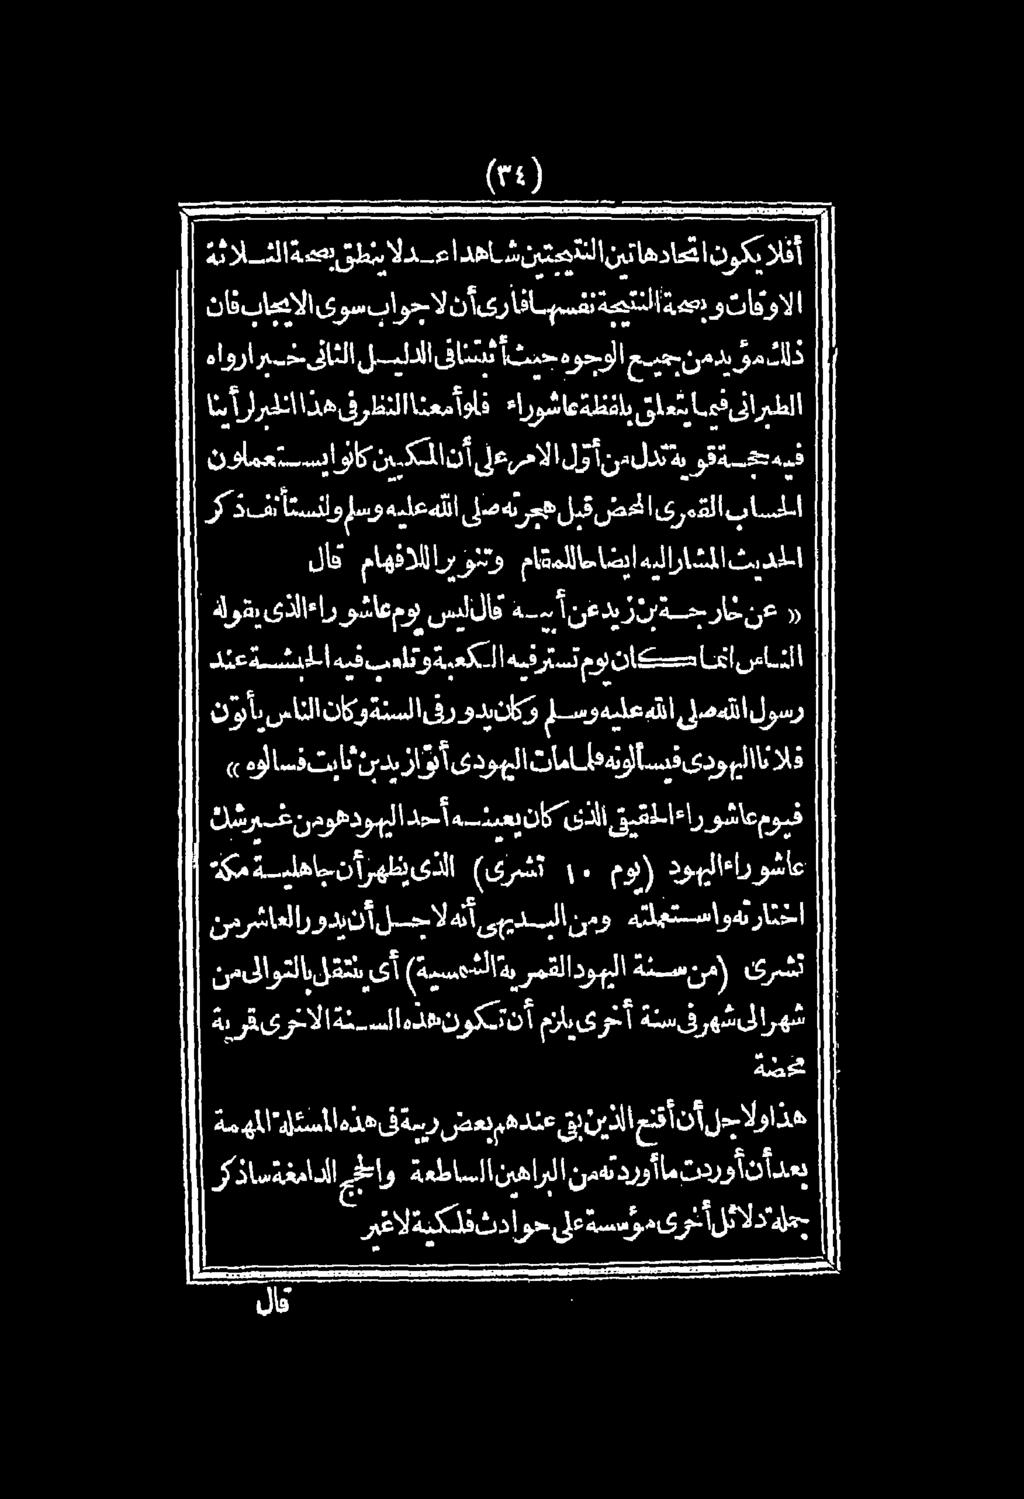 (٣٤)
أفلا يكون اتحاد هاتين النتيجتين شاهدا عدلا ينطق بصحة الثلاثة
الاوقات وبصحة النتيجة نفسها فأرى أن لا جواب سوى الايجاب فان
ذلك مؤيد من جميع الوجوه حيث أثبتنا فى الدليل الثانى خبرا رواه
الطبرانى فيما يتعلق بلفظة عاشوراء فلو أمعنا النظر فى هذا الخبر لرأينا
فيه حجة قوية تدل من أول الامر على أن المكيين كانوا يستعملون
الحساب القمرى المحض قبل هجرته صلى الله عليه وسلم ولنستأنف ذكر
الحديث المشار اليه ايضاحا للمقام وتنويرا للافهام قال
« عن خارجة بن زيد عن أبيه قال ليس يوم عاشوراء الذى يقوله
الناس انما كان يوم تستر فيه الكعبة وتلعب فيه الحبشة عند
رسول الله صلى الله عليه وسلم وكان يدور فى السنة وكان الناس يأتون
فلانا اليهودى فيسألونه فلما مات اليهودى أتوا زيد بن ثابت فسالوه »
فيوم عاشوراء الحقيقى الذى كان يعينه أحد اليهود هو من غير شك
عاشوراء اليهود (يوم ١٠ تشرى) الذى يظهر أن جاهلية مكة
اختارته واستعملته ومن البديهى أنه لاجل أن يدور العاشر من
تشرى (من سنة اليهود القمرية الشمسية) أى ينتقل بالتوالى من
شهر الى شهر فى سنة أخرى يلزم أن تكون هذه السنة الاخرى قمرية
محضة
هذا ولاجل أن أقنع الذين بقى عندهم بعض ريبة فى هذه المسئلة المهمة
بعد أن أوردت ما أوردته من البراهين الساطعة والحجج الدامغة ساذكر
جملة دلائل أخرى مؤسسة على حوادث فلكية لاغير
قال